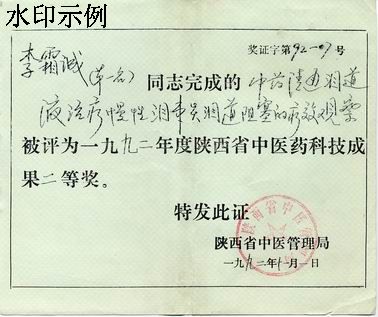 水印示例
奖证字第92-07号
李霜诚(第一名)同志完成的中药清通泪道
液治疗慢性泪囊炎泪道阻塞的疗效观察
被评为一九九二年度陕西省中医药科技成
果二等奖。
特发此证
陕西省中医管理局
一九九二年十一月一日